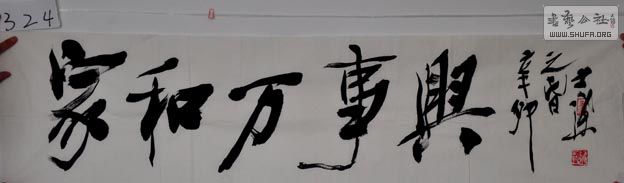 324
家和万事興
辛卯
之春
书艺公社
WWW.SHUFA.ORG